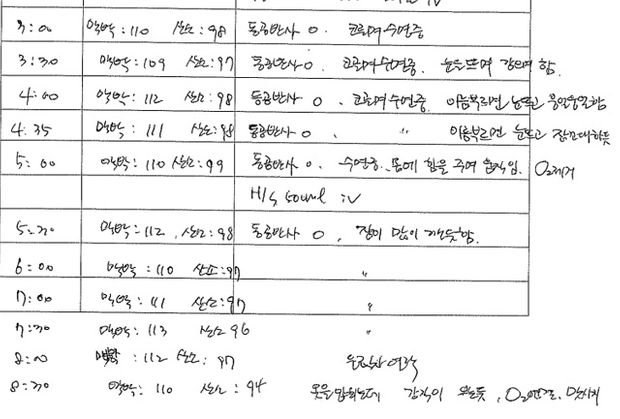 3:00 맥박:110 산소:98 동공반사 O. 코골며 수면중
3:30 맥박:109 산소:97 동공반사 O. 코골며 수면중. 눈을 뜨며 함.
4:00 맥박:112 산소:98 동공반사 O. 코골며 수면중 이름부르면 눈뜨고
4:35 맥박:111 산소:98 동공반사 O 〃 이름부르면 눈뜨고 잠꼬대하듯
5:00 맥박:110 산소:99 동공반사 O. 수면중. 몸에 힘을 주며 움직임. O₂제거
H/S iv
5:30 맥박:112, 산소:98 동공반사 O, 잠이 많이 깬듯함.
6:00 맥박:110 산소:97 〃
7:00 맥박:111 산소:97 〃
7:30 맥박:113 산소 96 〃
8:00 맥박:112 산소:97
8:30 맥박:110 산소:94 O₂